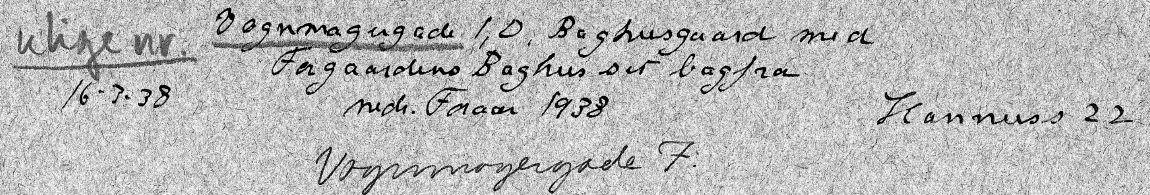 ulige nr.
16-3-38
Vognmagergade 1, O, Baghusgaard med
Forgaardens Baghus set bagfra
nedr. Foraar 1938
Hannuss 22
Vognmagergade 7.